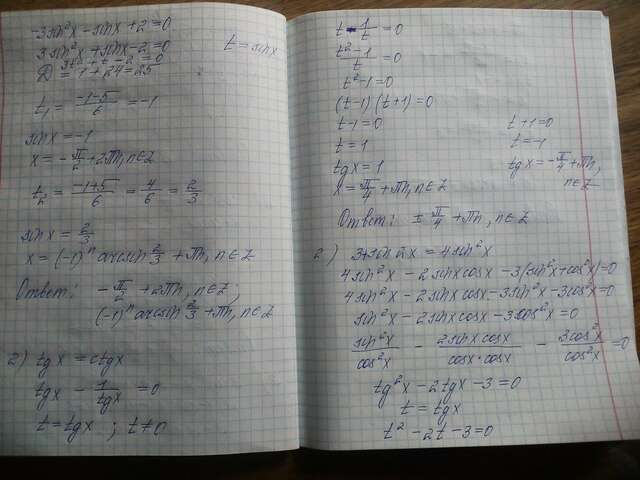 -3sin²x - sinx + 2 = 0
3sin²x + sinx - 2 = 0
t = sinx
3t² + t - 2 = 0
D = 1 + 24 = 25
t₁ = (-1-5)/6 = -1
sinx = -1
x = -π/2 + 2πn, n∈Z
t₂ = (-1+5)/6 = 4/6 = 2/3
sinx = 2/3
x = (-1)ⁿ arcsin 2/3 + πn, n∈Z
Ответ: -π/2 + 2πn, n∈Z;
(-1)ⁿ arcsin 2/3 + πn, n∈Z
2) tgx = ctgx
tgx - 1/tgx = 0
t = tgx ; t ≠ 0
t - 1/t = 0
(t²-1)/t = 0
t² - 1 = 0
(t-1)(t+1) = 0
t - 1 = 0
t = 1
tgx = 1
x = π/4 + πn, n∈Z
t + 1 = 0
t = -1
tgx = -π/4 + πn,
n∈Z
Ответ: ± π/4 + πn, n∈Z
2) 3 + sin2x = 4sin²x
4sin²x - 2sinxcosx - 3(sin²x + cos²x) = 0
4sin²x - 2sinxcosx - 3sin²x - 3cos²x = 0
sin²x - 2sinxcosx - 3cos²x = 0
sin²x/cos²x - 2sinxcosx/cosx·cosx - 3cos²x/cos²x = 0
tg²x - 2tgx - 3 = 0
t = tgx
t² - 2t - 3 = 0